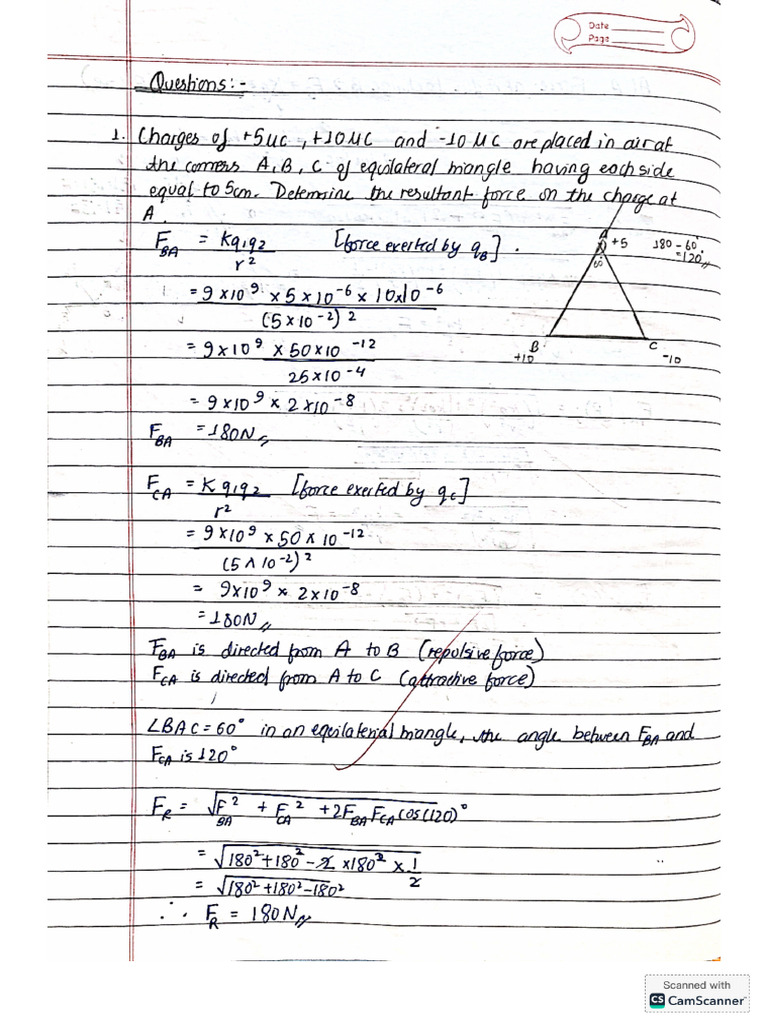 Date
Page
Questions:-
1. Charges of +5μc, +10μC and -10μC are placed in air at
the corners A, B, C of equilateral triangle having each side
equal to 5cm. Determine the resultant force on the charge at
A.
F_BA = Kq1q2 / r² [force exerted by q_B].
A +5 180-60° =120°//
60
B +10
C -10
= 9×10^9 × 5×10^-6 × 10×10^-6 / (5×10^-2)^2
= 9×10^9 × 50×10^-12 / 25×10^-4
= 9×10^9 × 2×10^-8
F_BA = 180N//
F_CA = Kq1q2 / r² [force exerted by q_C]
= 9×10^9 × 50×10^-12 / (5×10^-2)^2
= 9×10^9 × 2×10^-8
= 180N//
F_BA is directed from A to B (repulsive force)
F_CA is directed from A to C (attractive force)
∠BAC=60° in an equilateral triangle, the angle between F_BA and
F_CA is 120°
F_R = √(F_BA² + F_CA² + 2F_BA F_CA cos(120)°
= √(180²+180²-2×180²×1/2)
= √(180²+180²-180²)
∴ F_R = 180N//
Scanned with
CS CamScanner